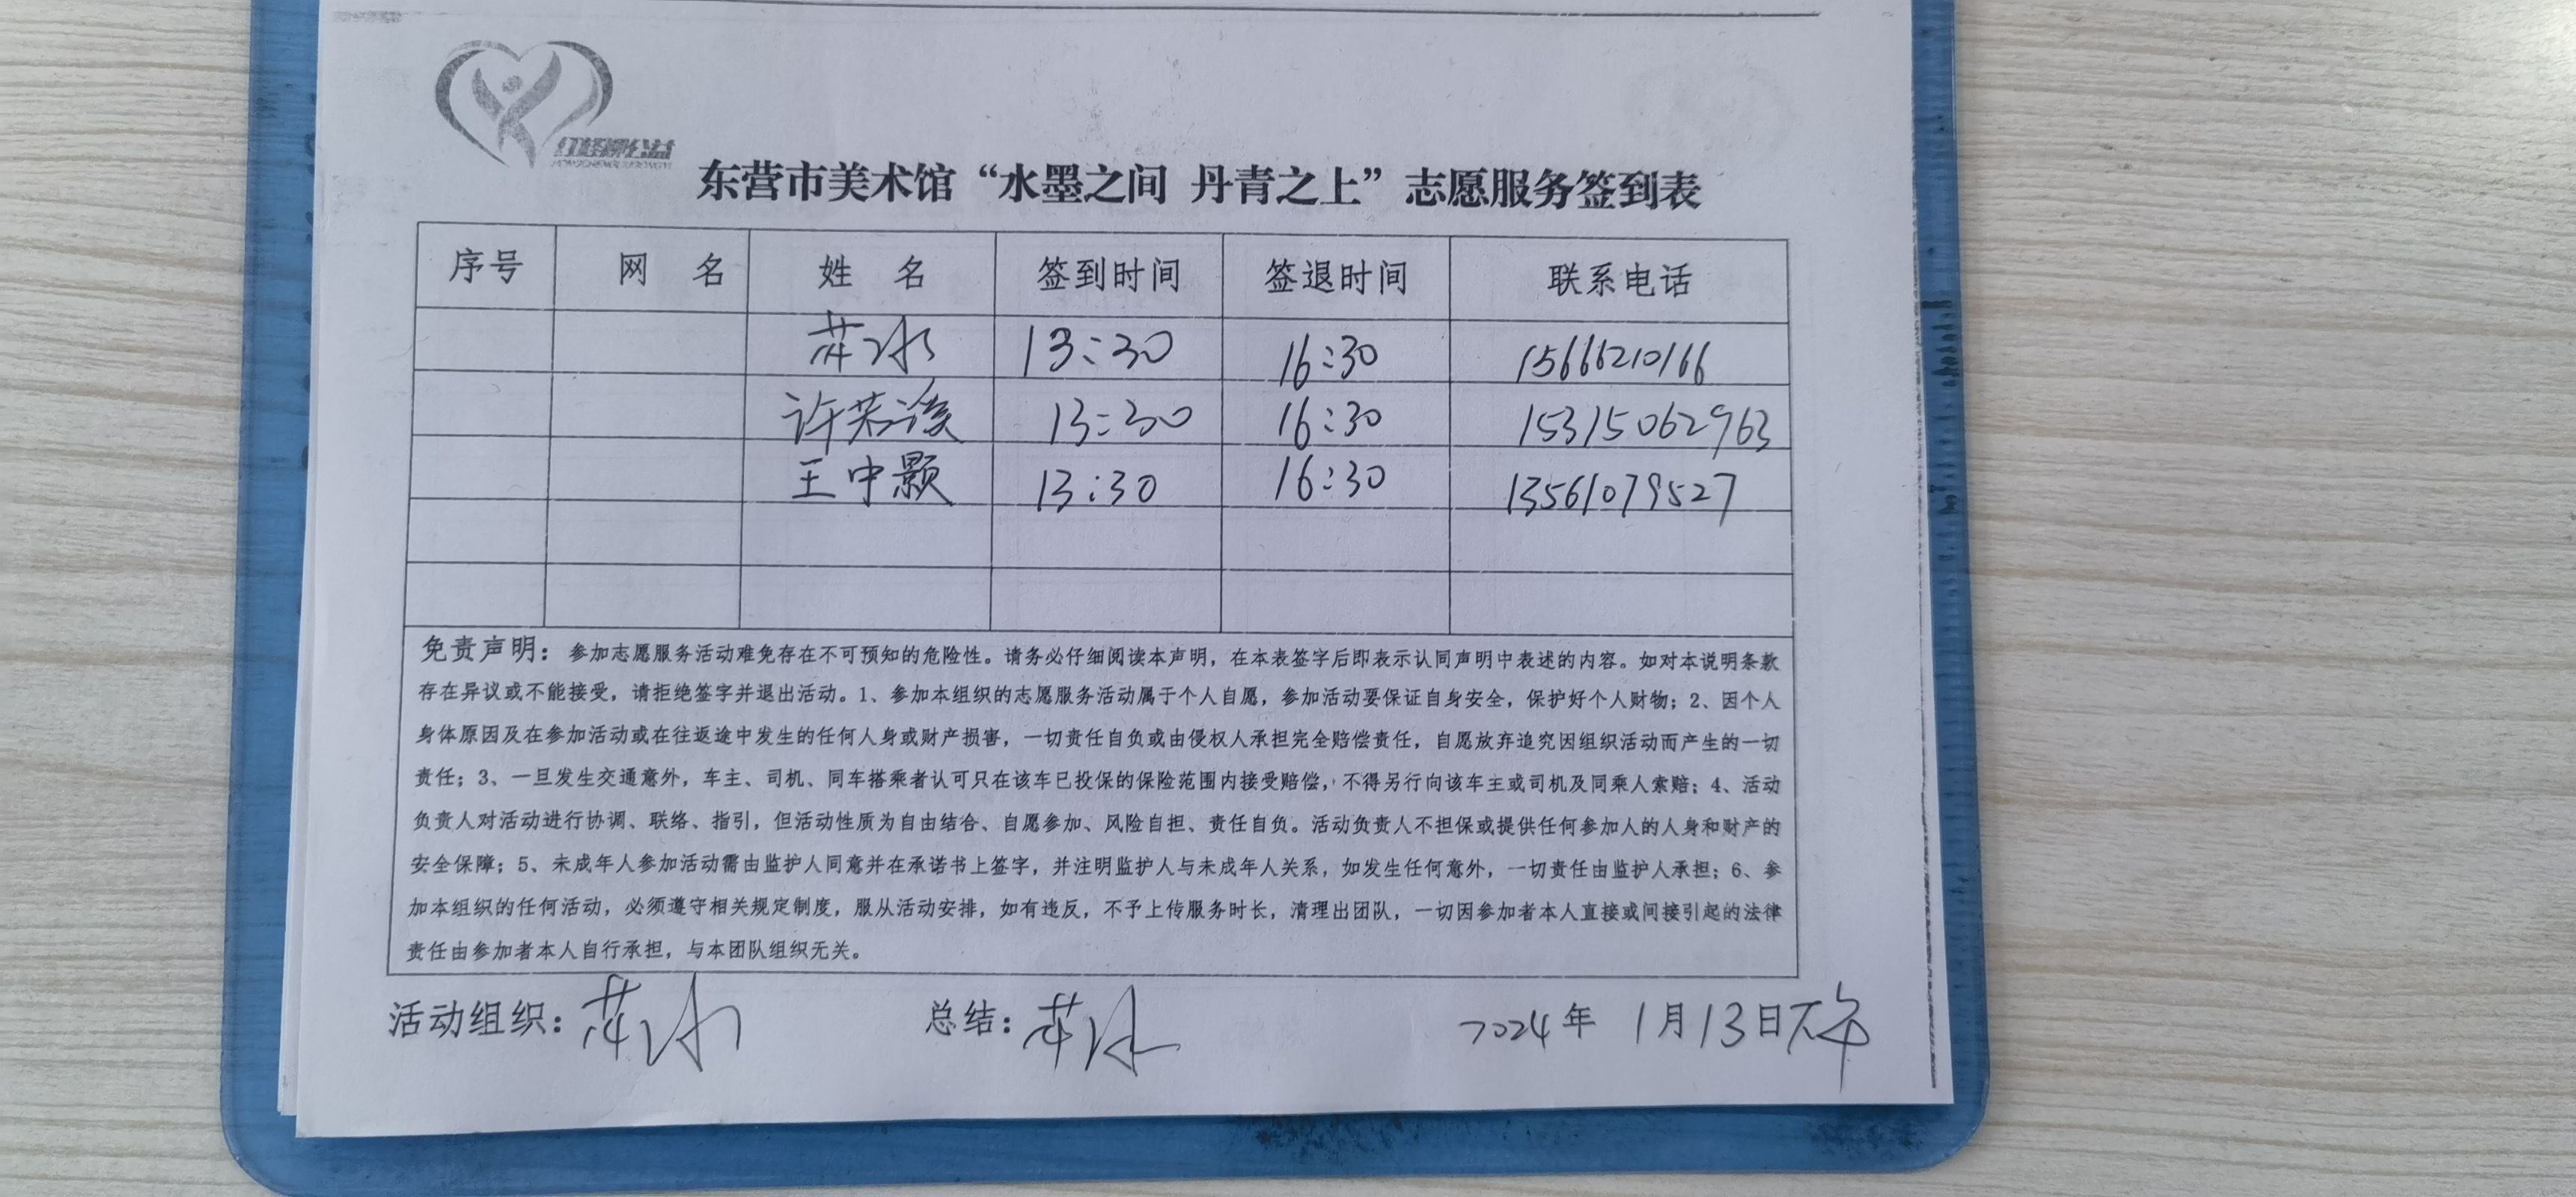 红柽柳公益
东营市美术馆“水墨之间 丹青之上”志愿服务签到表
序号 网 名 姓 名 签到时间 签退时间 联系电话
13:30 16:30 15666210166
许若 13:30 16:30 15315062963
王中颢 13:30 16:30 13561079527
免责声明：参加志愿服务活动难免存在不可预知的危险性。请务必仔细阅读本声明，在本表签字后即表示认同声明中表述的内容。如对本说明条款
存在异议或不能接受，请拒绝签字并退出活动。1、参加本组织的志愿服务活动属于个人自愿，参加活动要保证自身安全，保护好个人财物；2、因个人
身体原因及在参加活动或在往返途中发生的任何人身或财产损害，一切责任自负或由侵权人承担完全赔偿责任，自愿放弃追究因组织活动而产生的一切
责任；3、一旦发生交通意外，车主、司机、同车搭乘者认可只在该车已投保的保险范围内接受赔偿，不得另行向该车主或司机及同乘人索赔；4、活动
负责人对活动进行协调、联络、指引，但活动性质为自由结合、自愿参加、风险自担、责任自负。活动负责人不担保或提供任何参加人的人身和财产的
安全保障；5、未成年人参加活动需由监护人同意并在承诺书上签字，并注明监护人与未成年人关系，如发生任何意外，一切责任由监护人承担；6、参
加本组织的任何活动，必须遵守相关规定制度，服从活动安排，如有违反，不予上传服务时长，清理出团队，一切因参加者本人直接或间接引起的法律
责任由参加者本人自行承担，与本团队组织无关。
活动组织： 总结： 2024年 1月13日下午